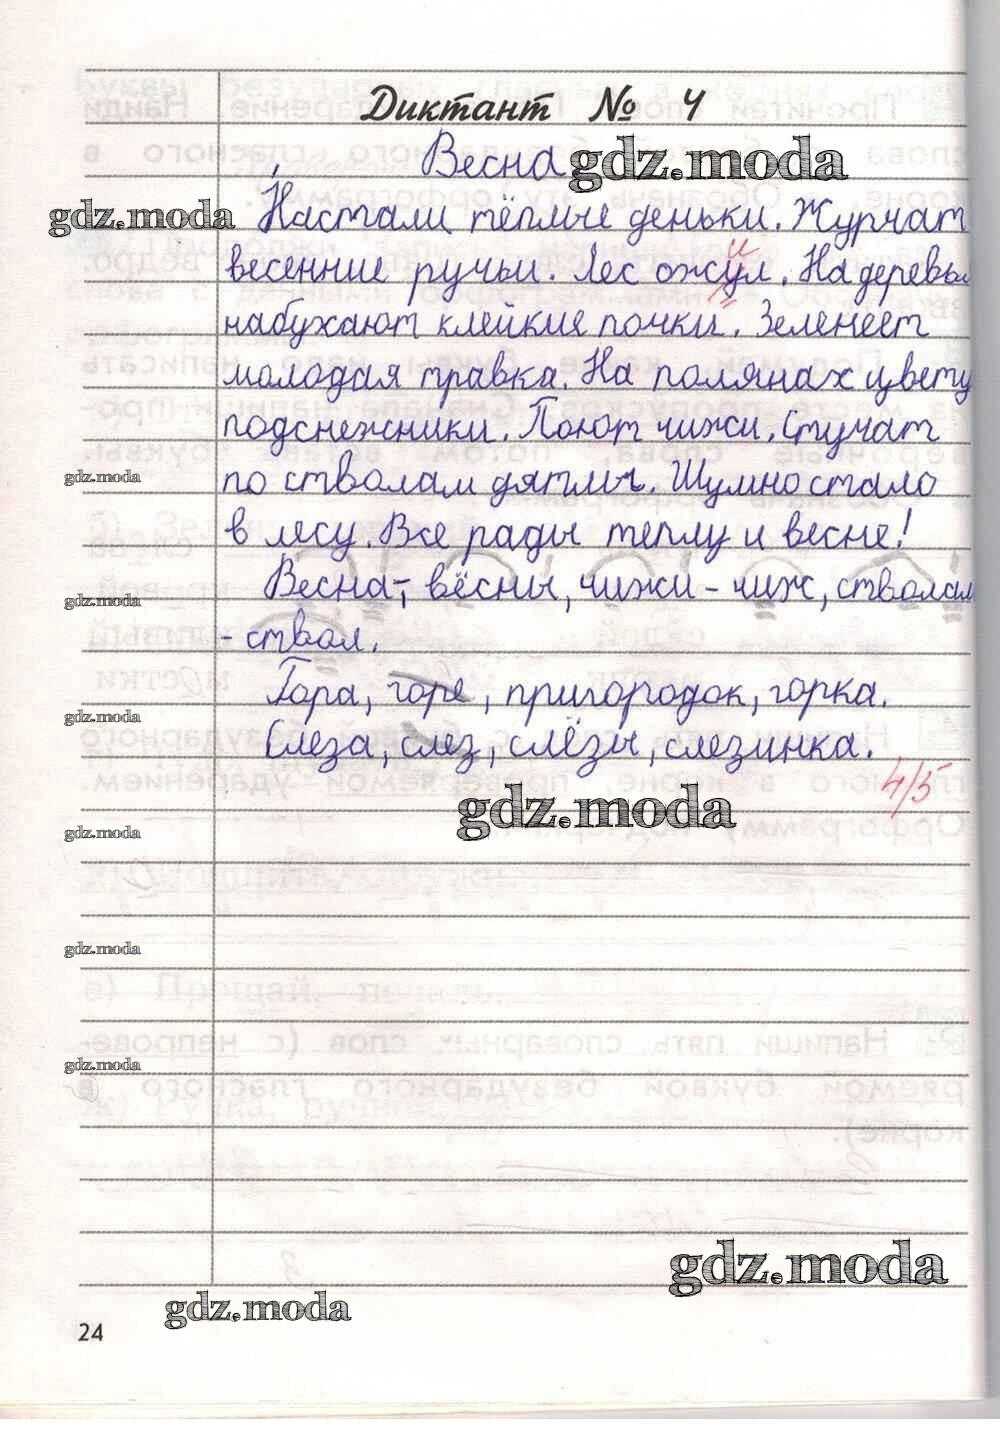 Диктант № 4
Весна
gdz.moda
gdz.moda
Настали тёплые деньки. Журчат
весенние ручьи. Лес ожул. На деревьях
и
набухают клейкие почки. Зеленеет
молодая травка. На полянах цвету
подснежники. Поют чижи. Стучат
gdz.moda
по стволам дятлы. Шумно стало
в лесу. Все рады теплу и весне!
Весна -, вёсны, чижи - чиж, стволам
gdz.moda
- ствол.
Гора, горе, пригородок, горка.
gdz.moda
Слеза, слез, слёзы, слезинка.
4/5
gdz.moda
gdz.moda
gdz.moda
gdz.moda
gdz.moda
gdz.moda
24